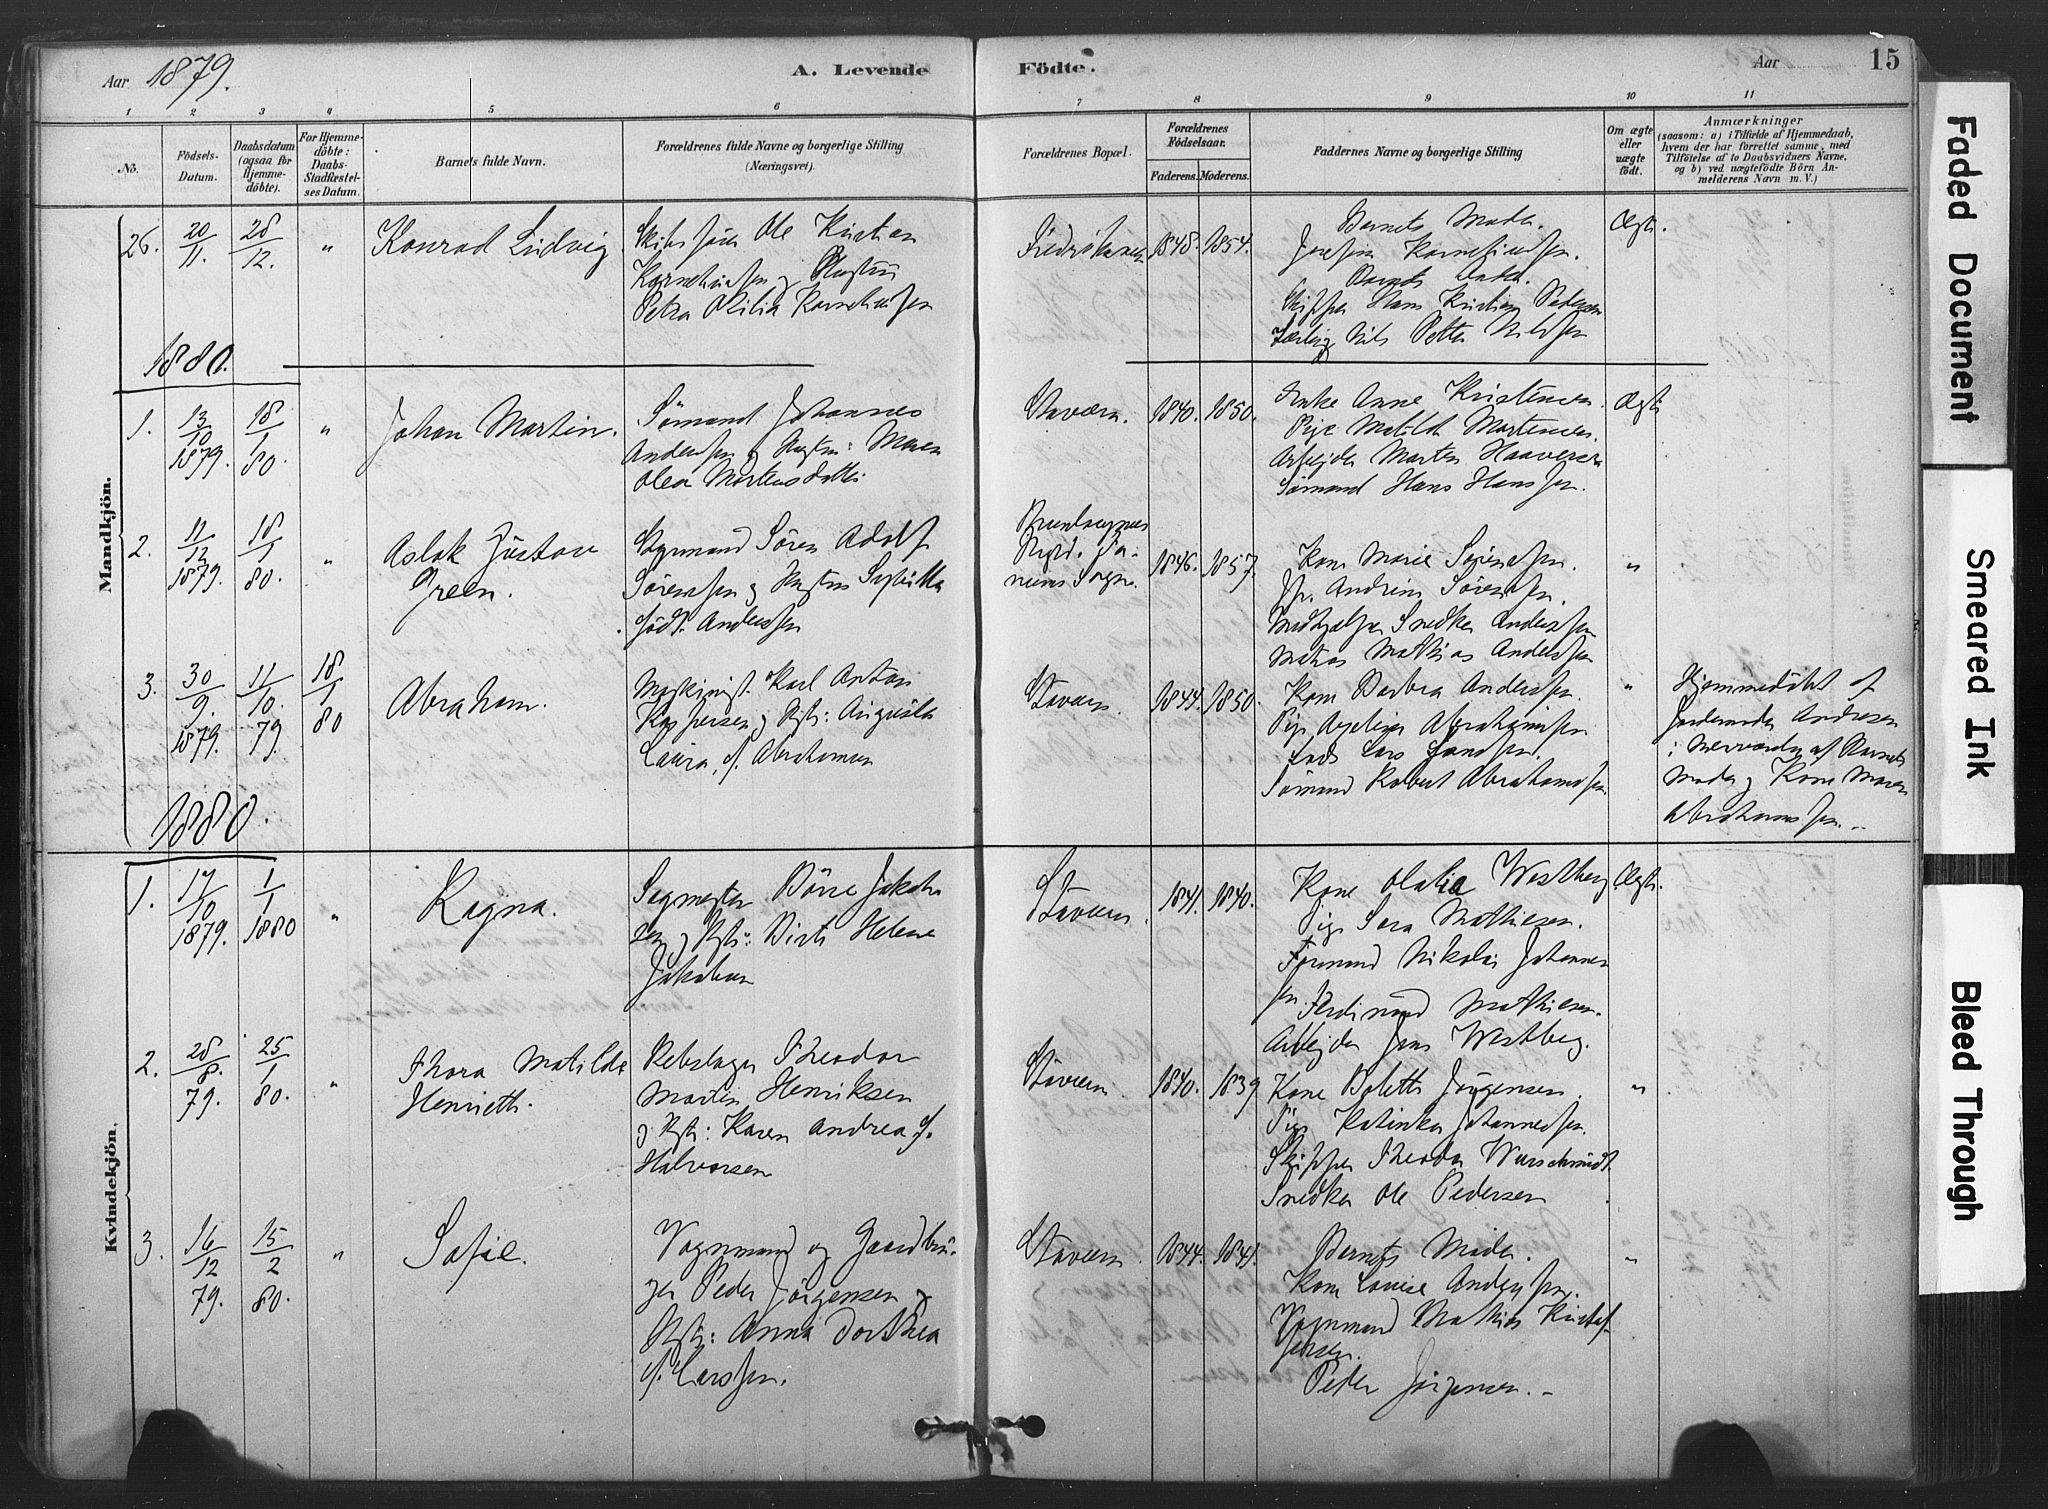 Aar 1879.
A. Levende Födte.
Aar
15
1 2 3 4 5 6 7 8 9 10 11
No.
Födsels-Datum.
Daabsdatum (ogsaa for Hjemme-döbte).
For Hjemme-döbte: Daabs-Stadfæstel-ses Datum.
Barnets fulde Navn.
Forældrenes fulde Navne og borgerlige Stilling (Næringsvei).
Forældrenes Bopæl.
Forældrenes Födselsaar.
Faderens. Moderens.
Faddernes Navne og borgerlig Stilling
Om ægte eller uægte födt.
Anmærkninger
(saasom: a) i Tilfælde af Hjemmedaab,
hvem der har forrettet samme, med
Tilföielse af to Daabsvidners Navne,
og b) ved uægtefödte Börn An-
melderens Navn m. V.)
Mandkjön.
26. 20/11. 28/12. " Konrad Ludvig
Ole Kristian
Korneliussen og Hustru
Petra Korneliussen
1848. 1854.
Barnets Moder.
Josefine Korneliussen.
Barnets Fader.
Skipper Hans Kristian Pedersen
Nils Petter Nilssen
Ægte.
1880.
1. 13/10 1879. 18/1 80. " Johan Martin.
Sömand Johannes
Anderssen og Hustru: Maren
Olea Mortensdatter
Stavern. 1840. 1850.
Enke Anne Kristensen.
Pige Matilde Mortensen.
Arbejder Morten Haaversen
Sömand Hans Hanssen.
Ægte
2. 11/12 1879. 18/1 80. " Aslak Gustav
Green.
Styrmand Sören Adolf
Sörenssen og Hustru
född. Anderssen
Sogn. 1846. 1857.
Kone Marie Sörenssen.
Jfr. Andrine Sörenssen.
Snedker Anderssen
Matros Mathias Anderssen
"
3. 30/9. 1879. 11/10. 79. 18/1 80 Abraham.
Maskinist Karl Anton
Kaspersen og Hstr: Augusta
Laura, f. Abrahamsen
Stavern. 1844. 1850.
Kone Barbra Anderssen.
Pige Abrahamssen
Lods Lars
Sömand Robert Abrahamssen.
"
Hjemmedöbt af
Jordemoder Andresen
i Nærværelse af Barnets
Moder og Kone Maren
Abrahamssen. -
1880.
Kvindekjön.
1. 17/10 1879. 1/1 1880 " Ragna.
Sagmester Börre Jakob-
sen og Hstr: Birte Helene
Jakobsen
Stavern. 1841. 1840.
Kone Olalia Westberg
Pige Sara Mathiesen.
Formand Nikolai Johannes
sen. Ferdinand Mathiesen.
Arbejder Jens Westberg.
Ægte.
2. 28/8. 79. 25/1 80. " Thora Matilde
Henriette.
Rebslager Theodor
Martin Henriksen
og Hstr: Karen Andrea f.
Halvorsen
Stavern. 1840. 1839
Kone Bolette Jörgensen.
Pige Katinka Johannessen.
Skipper Theodor Wurschmidt.
Snedker Ole Pedersen
"
3. 16/12 79. 15/2 80. " Sofie.
Vognmand og Gaardbru-
ger Peder Jörgensen og
Hstr: Anna Dorthea
f. Larssen.
Stavern. 1844. 1841.
Barnets Moder.
Kone Louise Anderssen.
Vognmand Mathias Kristof-
fersen.
Peder Jörgensen. -
"
Faded Document
Smeared Ink
Bleed Through